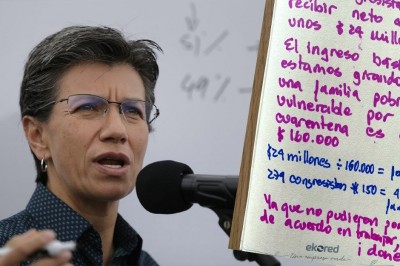 51%
49%
recibir neto a
unos $24 millone
El ingreso bás
estamos girando
una familia pobr
vulnerable por
cuarentena es
$160.000
$24 millones ÷ 160.000 =
279 congresistas * 150 =
Ya que no pudieron po
de acuerdo en trabajar,
¡done
ekored